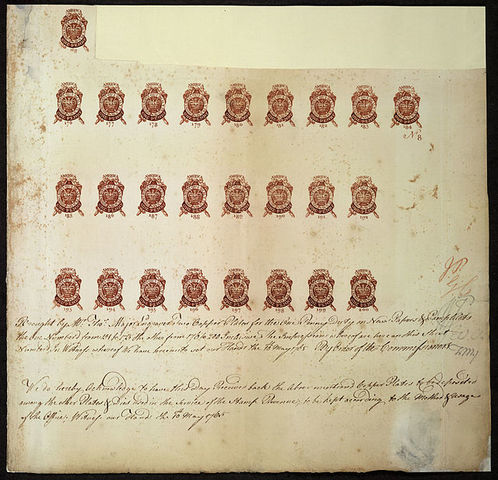 AMERICA
AMERICA AMERICA AMERICA AMERICA AMERICA AMERICA AMERICA AMERICA
176 177 178 179 180 181 182 183 184
No 8
185 186 187 188 189 190 191 192
193 194 195 196 197 198 199 200
Brought by Mr. Thos. Major Engraver Two Copper Plates for the One Penny Duty on News Papers & Pamphlets
the One Numbered from to 175 the other from 176 to 200 Inclusive, the Impression whereof are taken on this sheet
Numbered In Witness whereof we have hereunto set our Hand the 10 May 1765 By Order of the Commissioners
We do hereby Acknowledge to have this day Received back the above mentioned Copper Plates to be deposited
among the other Plates & Dies used in the Service of the Stamp Revenues, to be kept according to the Method & usage
of the Office. Witness our Hand the 10 May 1765